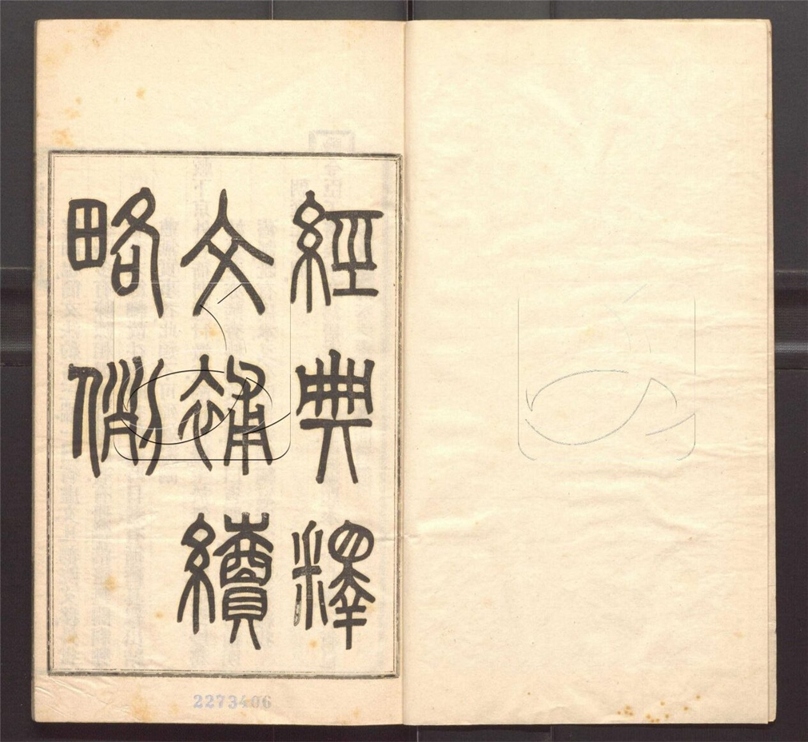 經典釋
文補續
略例
2273406